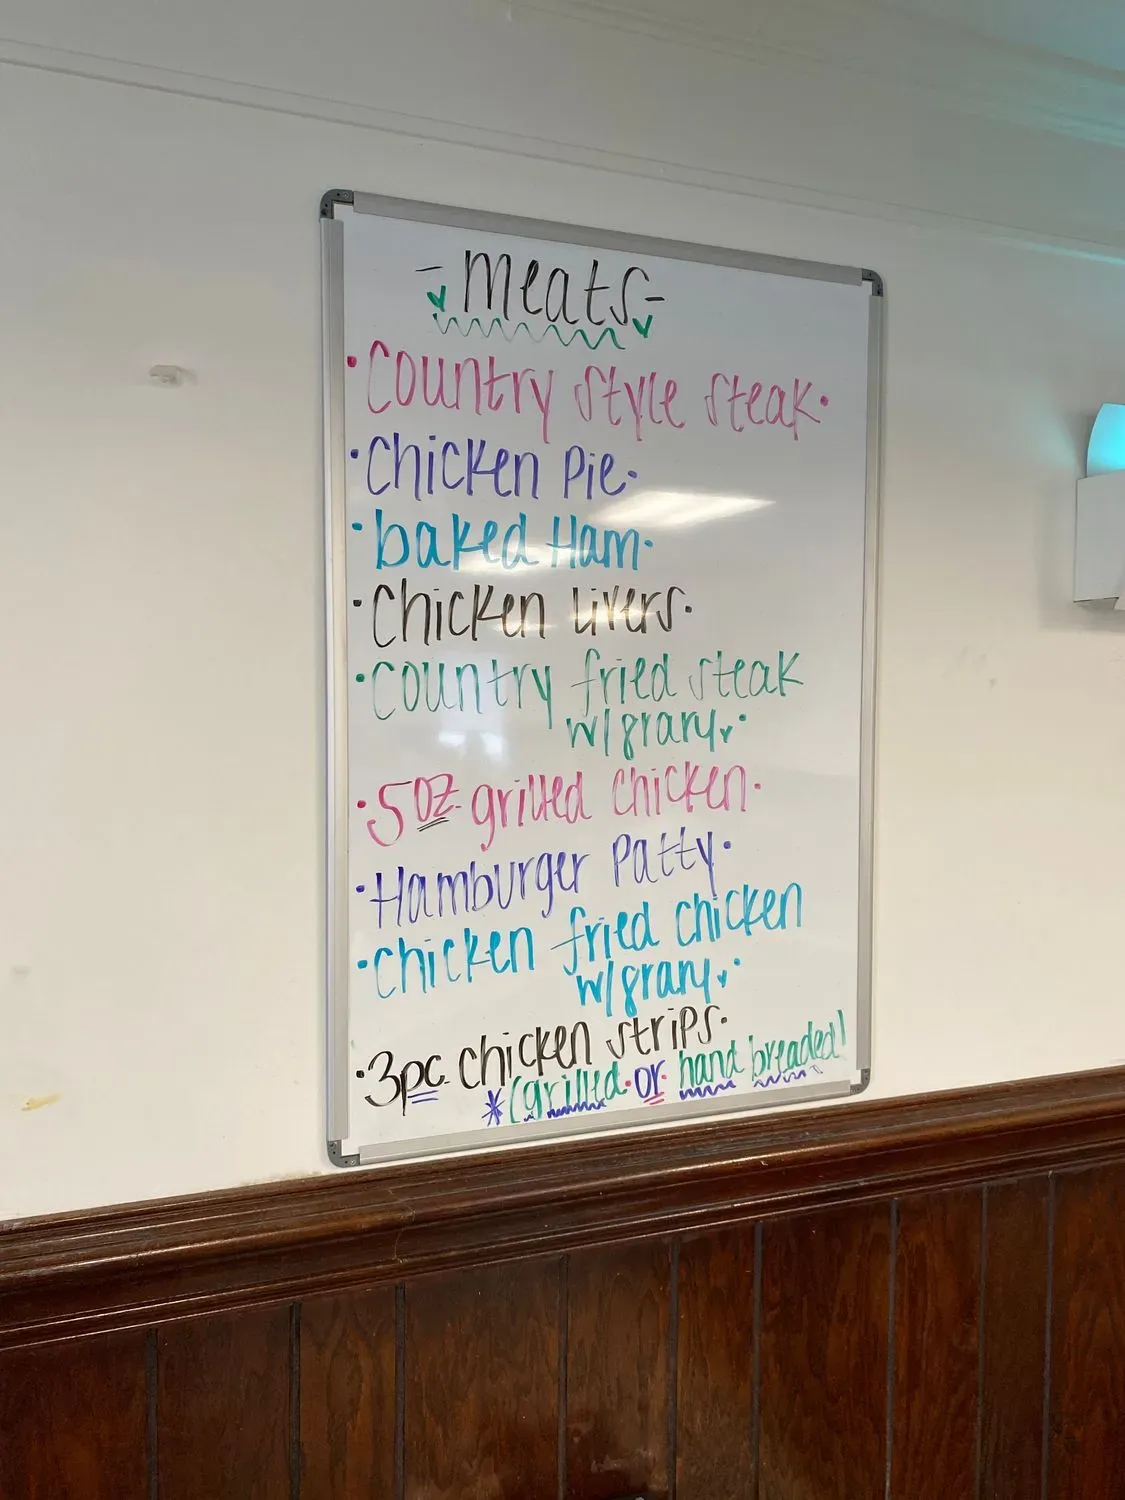 -Meats-
•Country Style Steak•
•Chicken Pie•
•baked Ham•
•Chicken Livers•
•Country fried steak
w/gravy•
•5oz grilled chicken•
•Hamburger Patty•
•Chicken fried chicken
w/gravy•
•3pc chicken strips•
*(grilled•or•hand breaded!